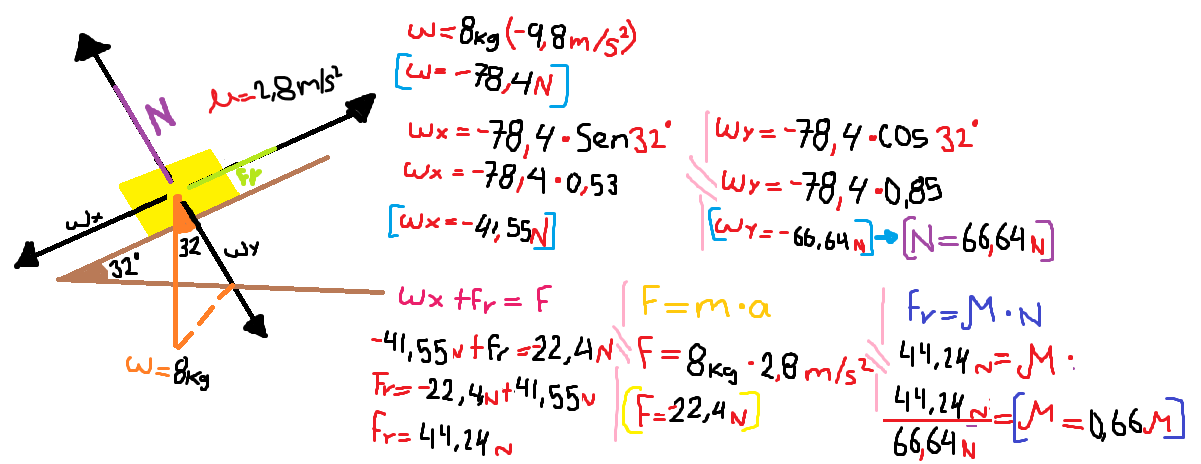 N
μ=2,8m/s²
Fr
wx
32
wy
32°
w=8kg
w=8kg(-9,8m/s²)
[w=-78,4N]
wx=-78,4·Sen32°
wx=-78,4·0,53
[wx=-41,55N]
wy=-78,4·cos 32°
wy=-78,4·0,85
[wy=-66,64N]→[N=66,64N]
wx+Fr=F
-41,55N+Fr=-22,4N
Fr=-22,4N+41,55N
Fr=44,24N
F=m·a
F=8kg·2,8m/s²
[F=22,4N]
Fr=M·N
44,24N=M·
44,24N
66,64N
=[M=0,66M]